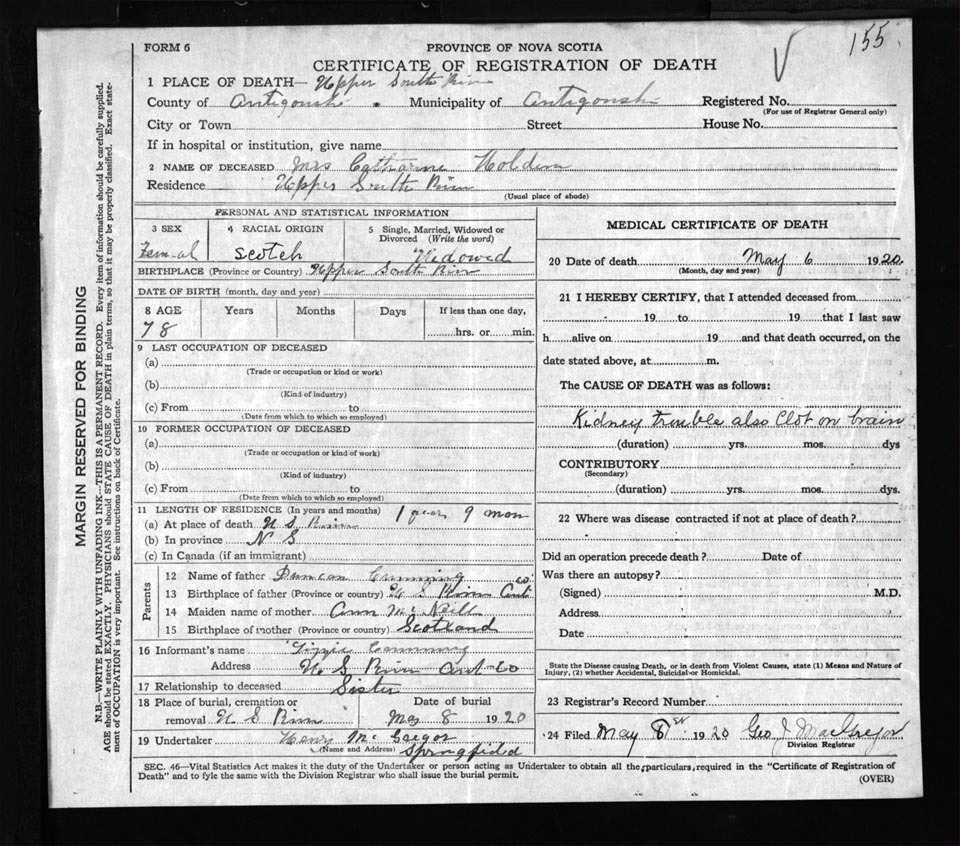 155
FORM 6
PROVINCE OF NOVA SCOTIA
CERTIFICATE OF REGISTRATION OF DEATH
1 PLACE OF DEATH— Upper South River
County of Antigonish Municipality of Antigonish Registered No.
(For use of Registrar General only)
City or Town Street House No.
If in hospital or institution, give name
2 NAME OF DECEASED Mrs Catharine
Residence Upper South River
(Usual place of abode)
PERSONAL AND STATISTICAL INFORMATION
3 SEX 4 RACIAL ORIGIN 5 Single, Married, Widowed or
Divorced (Write the word)
Femal Scotch Widowed
BIRTHPLACE (Province or Country) Upper South River
DATE OF BIRTH (month, day and year)
8 AGE Years Months Days If less than one day,
78 hrs. or min.
9 LAST OCCUPATION OF DECEASED
(a)
(Trade or occupation or kind or work)
(b)
(Kind of industry)
(c) From to
(Date from which to which so employed)
10 FORMER OCCUPATION OF DECEASED
(a)
(Trade or occupation or kind of work)
(b)
(Kind of industry)
(c) From to
(Date from which to which so employed)
11 LENGTH OF RESIDENCE (In years and months) 1 year 9 mon
(a) At place of death U S River
(b) In province N S
(c) In Canada (if an immigrant)
Parents
12 Name of father Duncan Cumming
13 Birthplace of father (Province or country) U S River Ant co
14 Maiden name of mother Ann McNeill
15 Birthplace of mother (Province or country) Scotland
16 Informant's name Lizzie Cumming
Address U S River Ant Co
17 Relationship to deceased Sister
18 Place of burial, cremation or Date of burial
removal U S River May 8 1920
19 Undertaker Henry McGregor
(Name and Address) Springfield
MEDICAL CERTIFICATE OF DEATH
20 Date of death May 6 1920
(Month, day and year)
21 I HEREBY CERTIFY, that I attended deceased from
19 to 19 that I last saw
h alive on 19 and that death occurred, on the
date stated above, at m.
The CAUSE OF DEATH was as follows:
Kidney trouble also Clot on brain
(duration) yrs. mos. dys
CONTRIBUTORY
(Secondary)
(duration) yrs. mos. dys.
22 Where was disease contracted if not at place of death?
Did an operation precede death? Date of
Was there an autopsy?
(Signed) M.D.
Address
Date
State the Disease causing Death, or in death from Violent Causes, state (1) Means and Nature of
Injury, (2) whether Accidental, Suicidal or Homicidal.
23 Registrar's Record Number
24 Filed May 8th 1920 Geo J MacGregor
Division Registrar
SEC. 46—Vital Statistics Act makes it the duty of the Undertaker or person acting as Undertaker to obtain all the particulars required in the "Certificate of Registration of
Death" and to fyle the same with the Division Registrar who shall issue the burial permit.
(OVER)
MARGIN RESERVED FOR BINDING
N.B.—WRITE PLAINLY WITH UNFADING INK—THIS IS A PERMANENT RECORD. Every item of information should be carefully supplied.
AGE should be stated EXACTLY. PHYSICIANS should STATE CAUSE OF DEATH in plain terms, so that it may be properly classified. Exact state-
ment of OCCUPATION is very important. See instructions on back of Certificate.